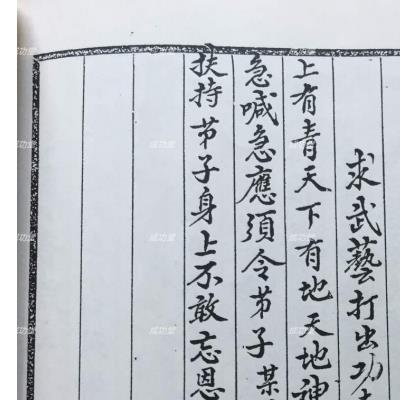 求武藝打出功夫
上有青天下有地天地神
急喊急應須令苐子某
扶持苐子身上不敢忘恩
成功堂